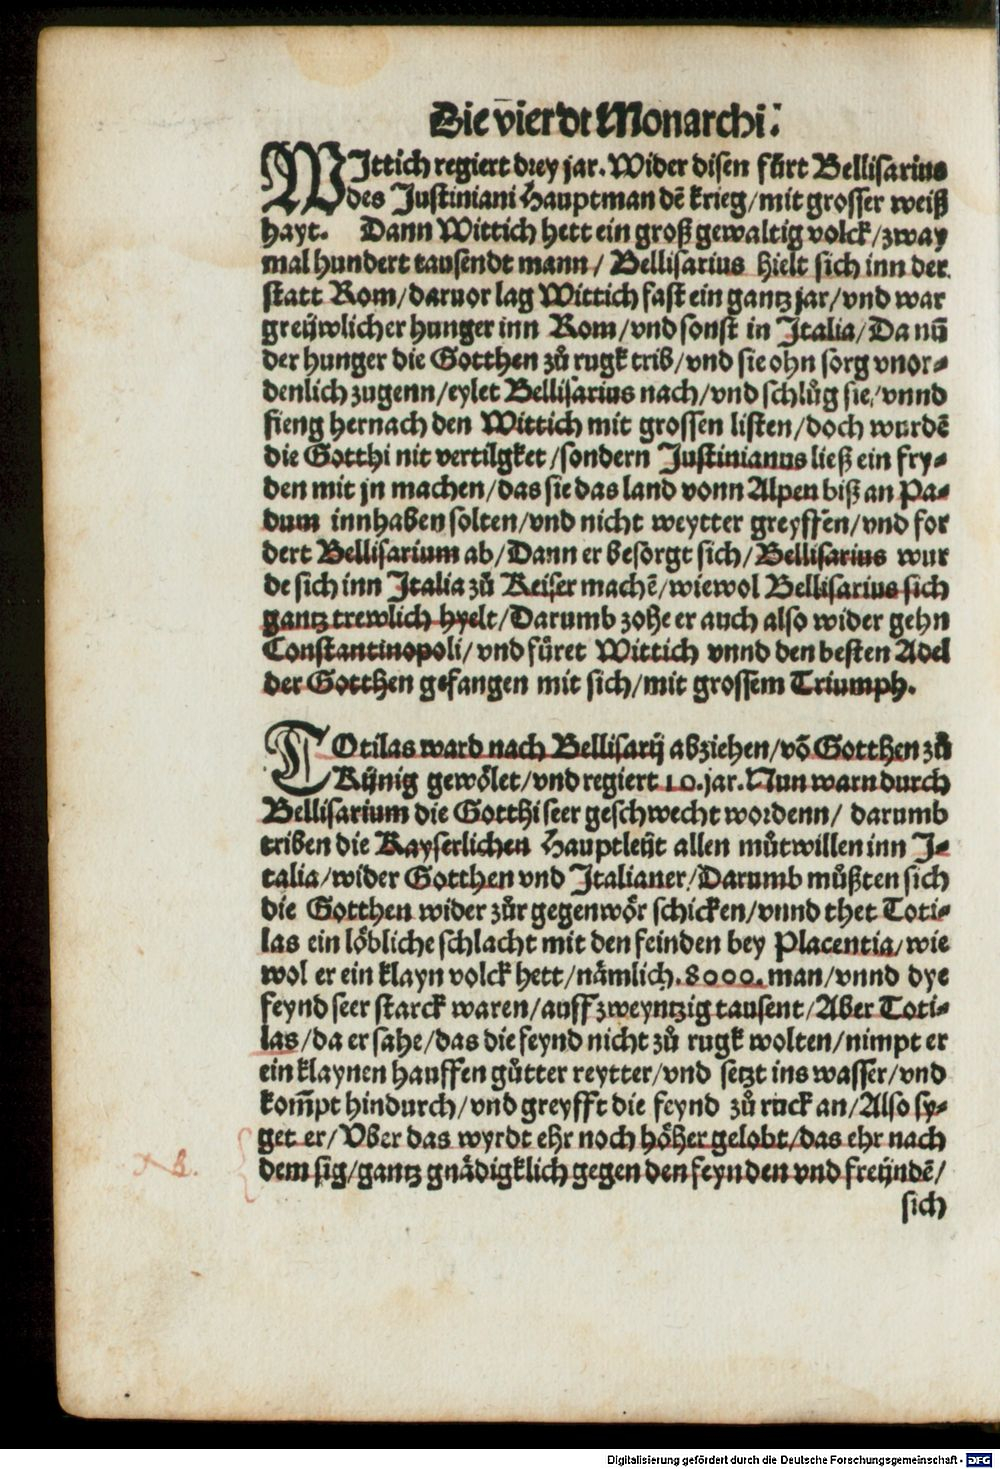 Die vierdt Monarchi.
WIttich regiert drey jar. Wider disen fůrt Bellisarius
des Justiniani Hauptman dē krieg/mit grosser weiß
hayt. Dann Wittich hett ein groß gewaltig volck/zway
mal hundert tausendt mann/ Bellisarius hielt sich inn der
statt Rom/daruor lag Wittich fast ein gantz jar/vnd war
greüwlicher hunger inn Rom/vnd sonst in Italia/Da nū
der hunger die Gotthen zů rugk trib/vnd sie ohn sorg vnor-
denlich zugenn/eylet Bellisarius nach/vnd schlůg sie/vnnd
fieng hernach den Wittich mit grossen listen/doch wurdē
die Gotthi nit vertilgket/sondern Justinianus ließ ein fry-
den mit jn machen/das sie das land vonn Alpen biß an Pa-
dum innhaben solten/vnd nicht weytter greyffen/vnd for
dert Bellisarium ab/Dann er besorgt sich/Bellisarius wur
de sich inn Italia zů Keiser machē/wiewol Bellisarius sich
gantz trewlich hyelt/Darumb zohe er auch also wider gehn
Constantinopoli/vnd fůret Wittich vnnd den besten Adel
der Gotthen gefangen mit sich/mit grossem Triumph.
TOtilas ward nach Bellisarij abziehen/vō Gotthen zů
Künig gewölet/vnd regiert 10.jar. Nun warn durch
Bellisarium die Gotthi seer geschwecht wordenn/ darumb
triben die Kayserlichen Hauptleüt allen můtwillen inn J-
talia/wider Gotthen vnd Italianer/Darumb můßten sich
die Gotthen wider zůr gegenwör schicken/vnnd thet Toti-
las ein löbliche schlacht mit den feinden bey Placentia/wie
wol er ein klayn volck hett/nämlich.8000.man/vnnd dye
feynd seer starck waren/auff zweyntzig tausent/Aber Toti-
las/da er sahe/das die feynd nicht zů rugk wolten/nimpt er
ein klaynen hauffen gůtter reytter/vnd setzt ins wasser/vnd
kom̄pt hindurch/vnd greyfft die feynd zů ruck an/Also sy-
get er/Vber das wyrdt ehr noch höher gelobt/das ehr nach
dem sig/gantz gnädigklich gegen den feynden vnd freündē/
sich
Digitalisierung gefördert durch die Deutsche Forschungsgemeinschaft - DFG